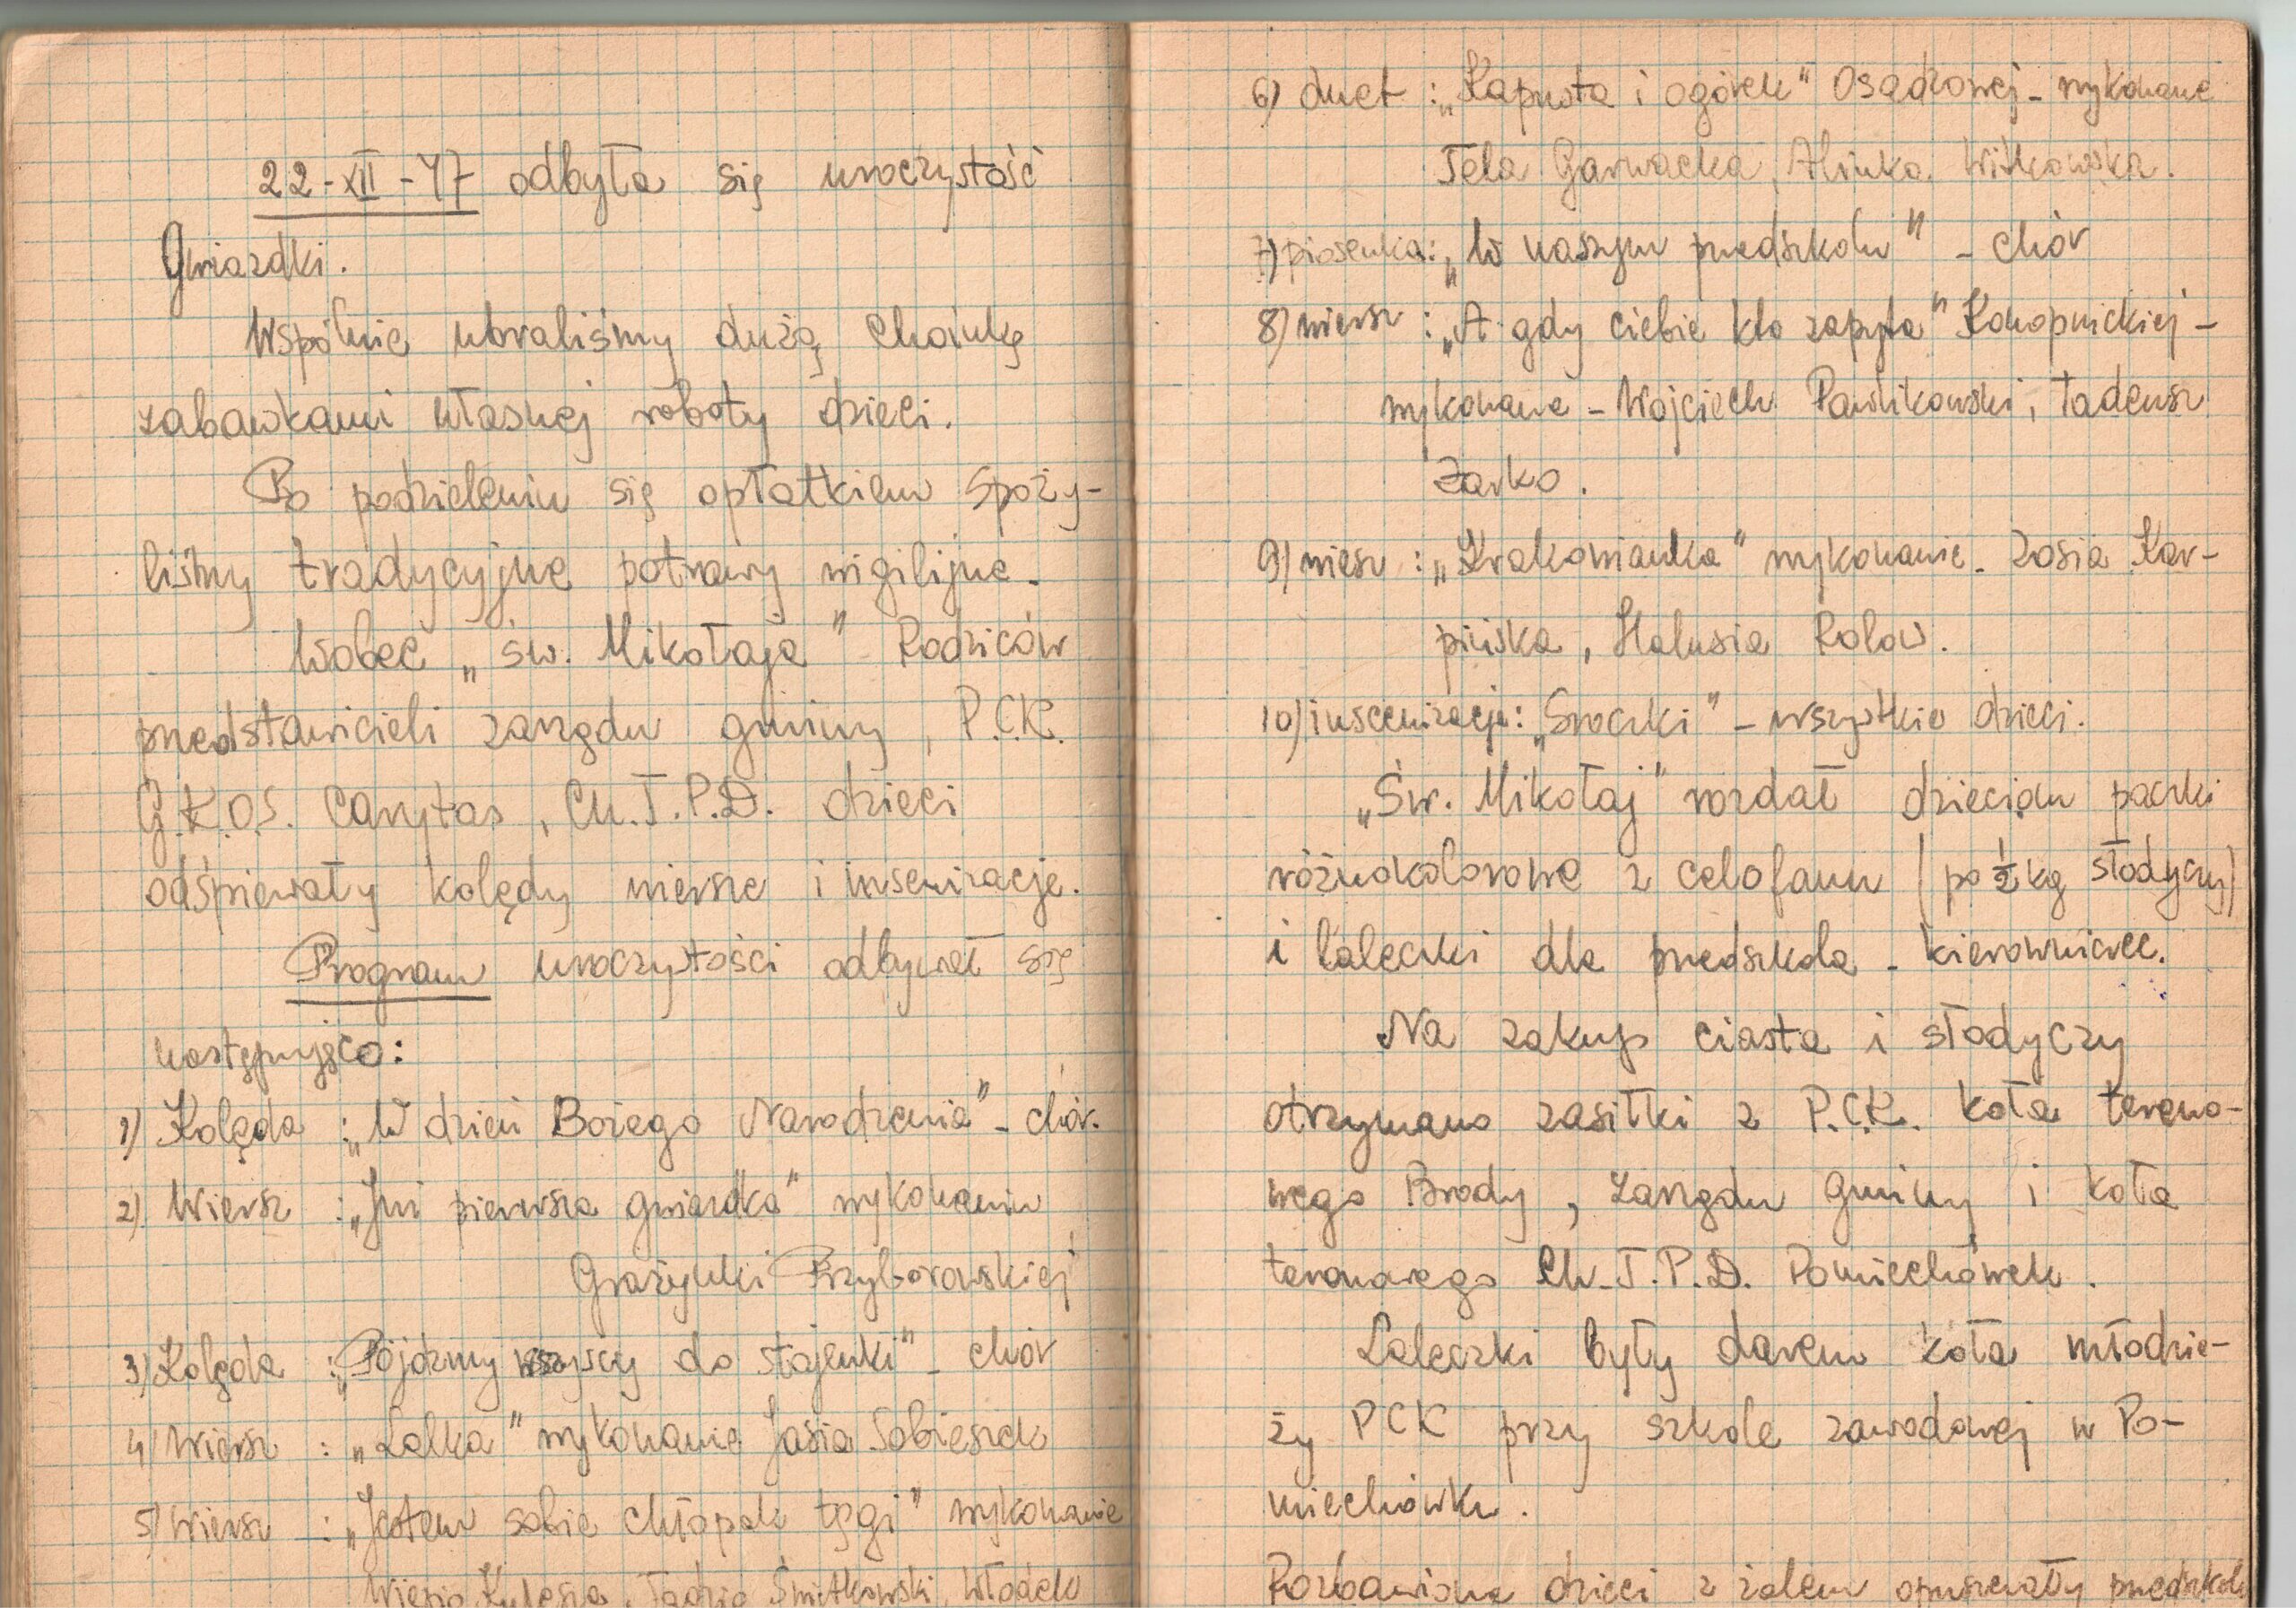 22-XII-47 odbyła się uroczystość
Gwiazdki.
Wspólnie ubraliśmy dużą choinkę
zabawkami własnej roboty dzieci.
Po podzieleniu się opłatkiem spoży-
liśmy tradycyjne potrawy wigilijne.
Wobec „św. Mikołaja" Rodziców
przedstawicieli zarządu gminy, P.C.K.
G.K.O.S. Carytas, Ch.T.P.D. dzieci
odśpiewały kolędy wiersze i inscenizacje.
Program uroczystości odbywał się
następująco:
1) Kolęda : „W dzień Bożego Narodzenia" - chór.
2) Wiersz : „Już pierwsza gwiazdka" wykonaniu
Grażynki Przyborowskiej
3) Kolęda : „Pójdźmy wszyscy do stajenki" - chór
4) Wiersz : „Lalka" wykonanie Jasia Sobieszek
5) Wiersz : „Jestem sobie chłopak tęgi" wykonanie
Wiesio Kulesza, Tadzio Śmitkowski, Włodek
6) duet : „Kapusta i ogórek" Osadzowej - wykonane
Tela Garwacka, Alinka Witkowska.
7) piosenka: „W naszym przedszkolu" - chór
8) wiersz : „A gdy ciebie kto zapyta" Konopnickiej -
wykonane - Wojciech Pawlikowski, Tadeusz
Żarko.
9) wiersz : „Krakowianka" wykonanie - Zosia Kar-
pińska, Halusia Rolow.
10) inscenizacja: „Sroczki" - wszystkie dzieci.
„Św. Mikołaj" rozdał dzieciom paczki
różnokolorowe z celofanu (po ½ kg słodyczy)
i laleczki dla przedszkola - kierowniczce.
Na zakup ciasta i słodyczy
otrzymano zasiłki z P.C.K. koła tereno-
wego Brody, zarządu gminy i koła
terenowego Ch.T.P.D. Pomiechówek.
Laleczki były darem koła młodzie-
ży PCK przy szkole zawodowej w Po-
miechówku.
Rozbawione dzieci z żalem opuszczały przedszkole